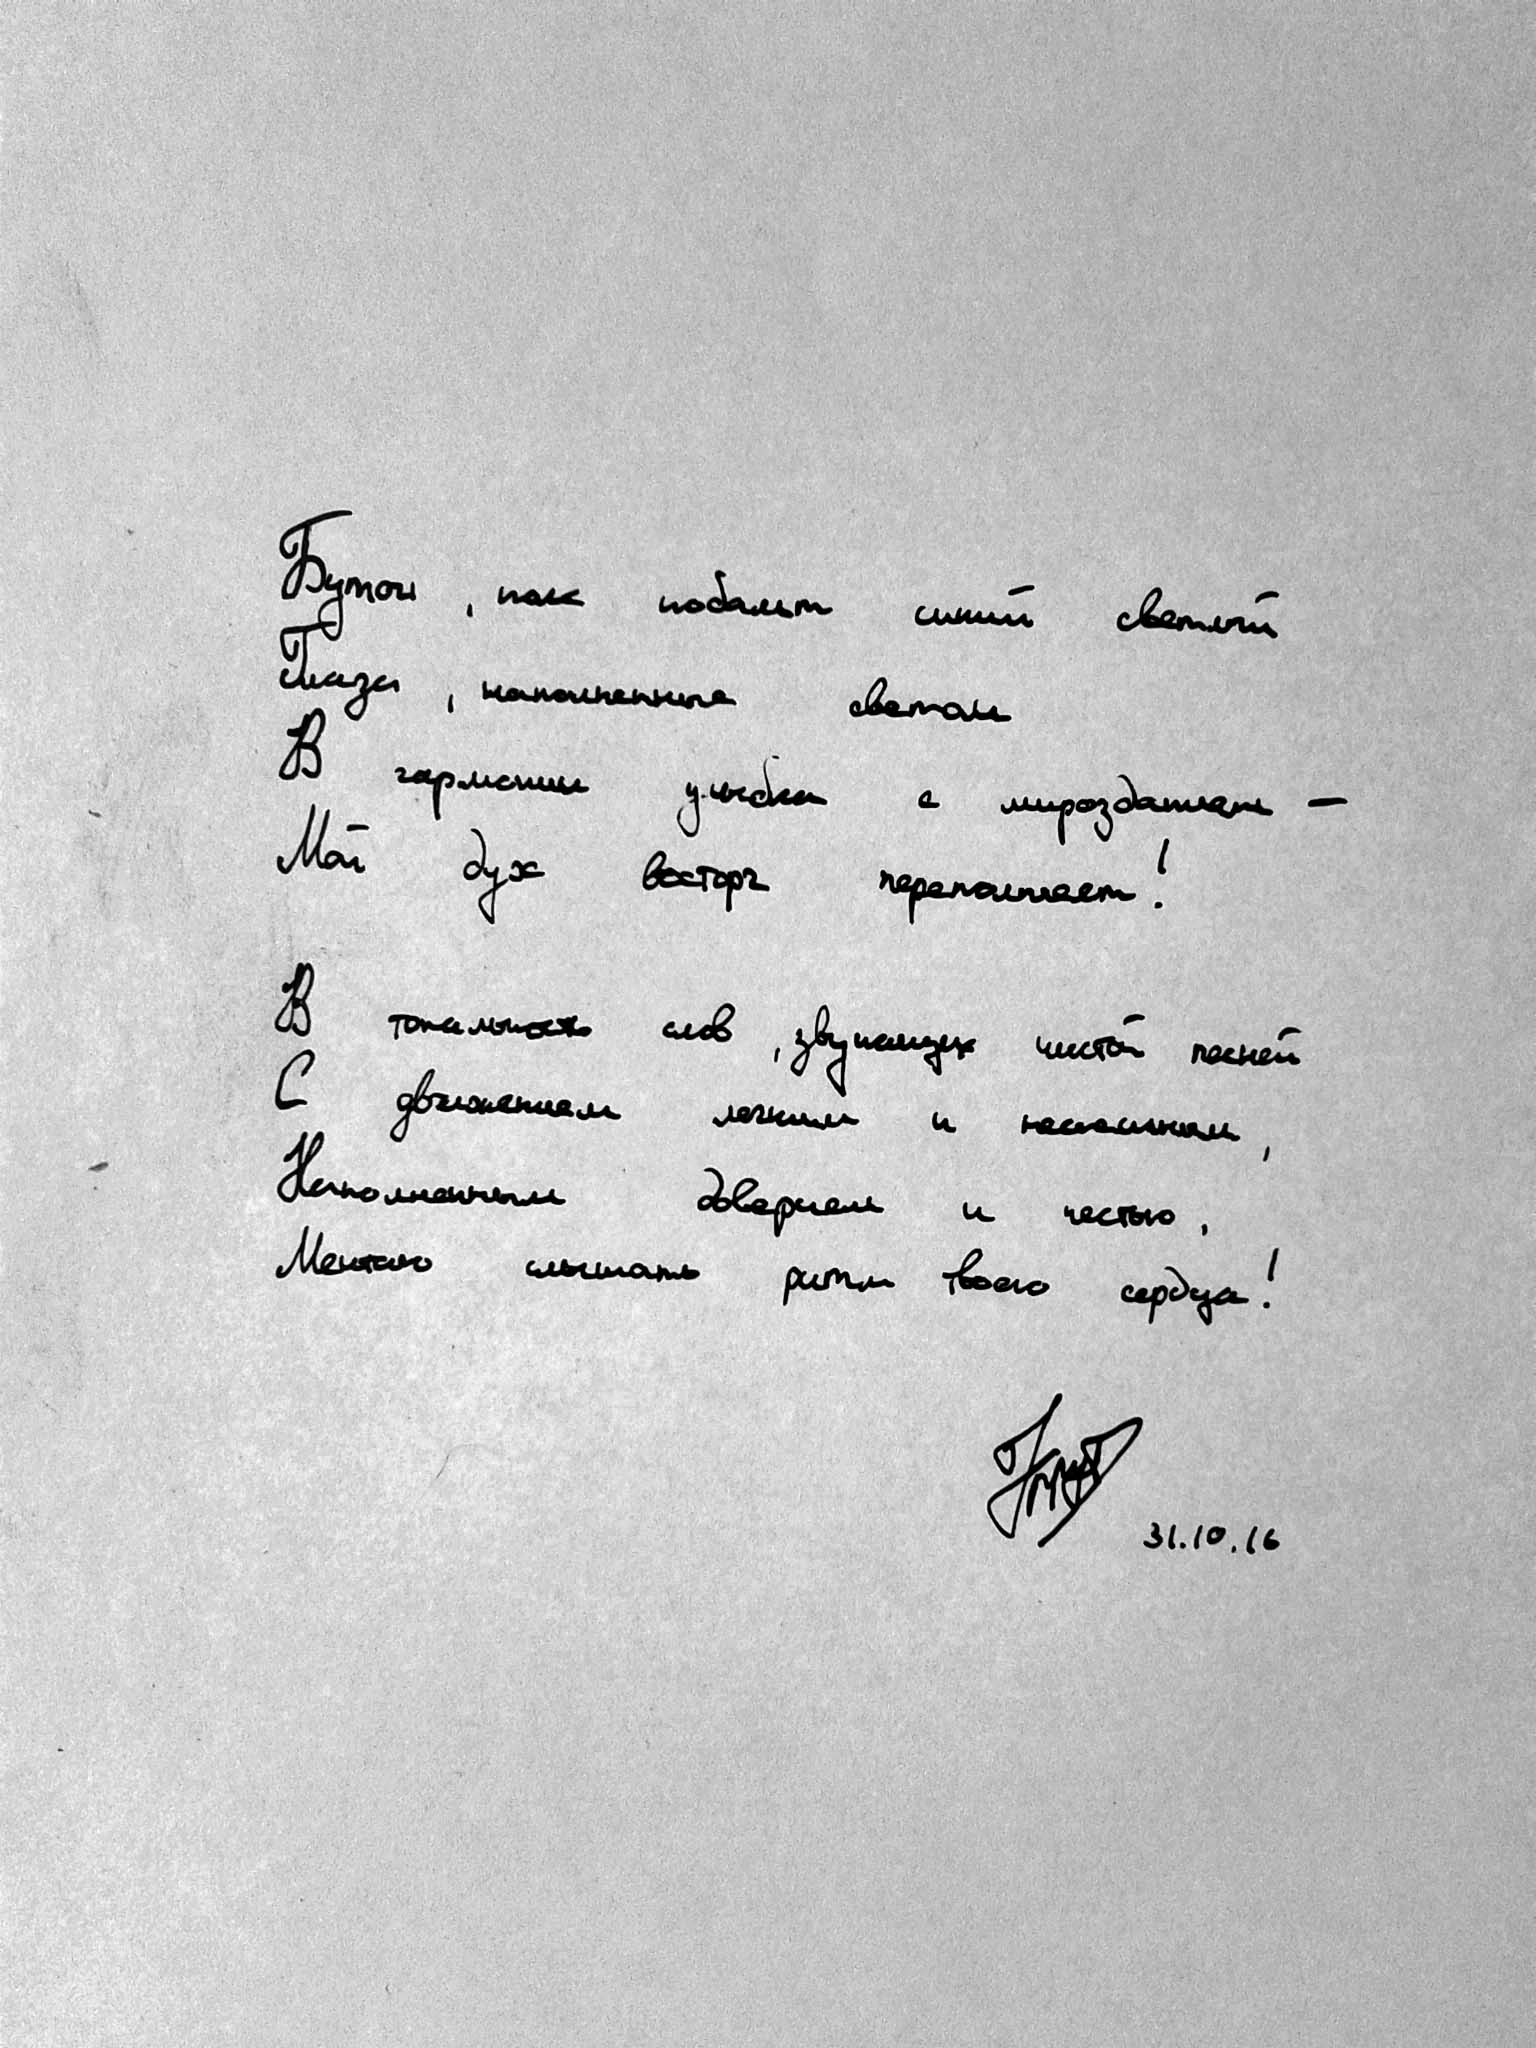 Бутон, как кобальт синий светлый
Глаза, наполненные светом
В гармонии улыбки с мирозданием —
Мой дух восторг переполняет!
В тональность слов, звучащих чистой песней
С движением легким и неспешным,
Наполненным доверием и честью,
Мечтаю слышать ритм твоего сердца!
31.10.16